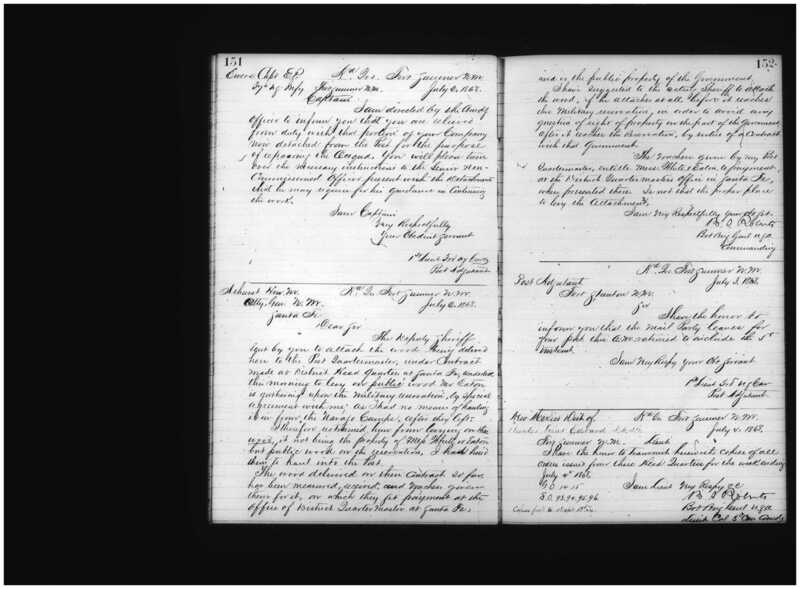 151
Hd Qrs. Fort Sumner N.M.
Fort Sumner N.M. July 2. 1868.
Captain
I am directed by the Comdg
officer to inform you that you are relieved
from duty with that portion of your Company
now detached from the Post for the purpose
of repairing the Acequia. You will please turn
over the necessary instructions to the Senior Non-
Commissioned Officer present with the Detachment
that he may require for his guidance in continuing
the work.
I am Captain
Very Respectfully
Your Obedient Servant
1st Lieut
Post Adjutant
Ashurst Hon. Mr.
Atty. Gen. N. M.
Santa Fe
Hd Qrs Fort Sumner N.M.
July 2. 1868.
Dear Sir
The Deputy Sheriff
sent by you to attach the wood being delivered
here to the Post Quartermaster, under Contract
made at District Head Quarters at Santa Fe, undertook
this morning to levy on public wood Mr Eaton
is gathering upon the military reservation, by special
agreement with me; as I had no means of hauling
it in from the Navajo Camps, after they left.
I therefore restrained him from carrying on this
it not being the property of Mess. White or Eaton
but public wood on the reservation, I had hired
them to haul into the Post.
The wood delivered on their Contract so far,
has been measured, received, and Vouchers given
them for it, on which they get payment at the
office of District Quartermaster at Santa Fe,
152
and is the public property of the Government.
I have suggested to the acting Sheriff to attach
the wood, if he attaches at all, before it reaches
the Military reservation, in order to avoid any
question of right of property on the part of the Government
after it reaches the Reservation, by virtue of a Contract
with that Government.
The Vouchers given by my Post
Quartermaster, entitle Mess. White & Eaton to payment,
at the District Quartermasters office in Santa Fe,
when presented there. Is not that the proper place
to levy the Attachment.
I am Very Respectfully Your Obt Svt.
B. S. Roberts
Bvt Brig Genl U.S.A.
Commanding
Hd Qrs Fort Sumner N.M.
July 3. 1868.
Post Adjutant
Fort Stanton N.M.
Sir
I have the honor to
inform you that the Mail Party leaves for
your post
instant.
I am Very Respy Your Obt Servant
1st Lieut
Post Adjutant.
New Mexico Dist of
Hd Qrs Fort Sumner N.M.
July 4. 1868.
Fort Sumner N.M. Lieut
I have the honor to transmit herewith copies of all
orders issued from these Head Quarters for the week ending
July 4th 1868.
G.O. 14. 15
S.O. 93. 94. 95. 96
I am Lieut Very Respy &c
B. S. Roberts
Bvt Brig Genl U.S.A.
Lieut Col 3d Cav Comdg